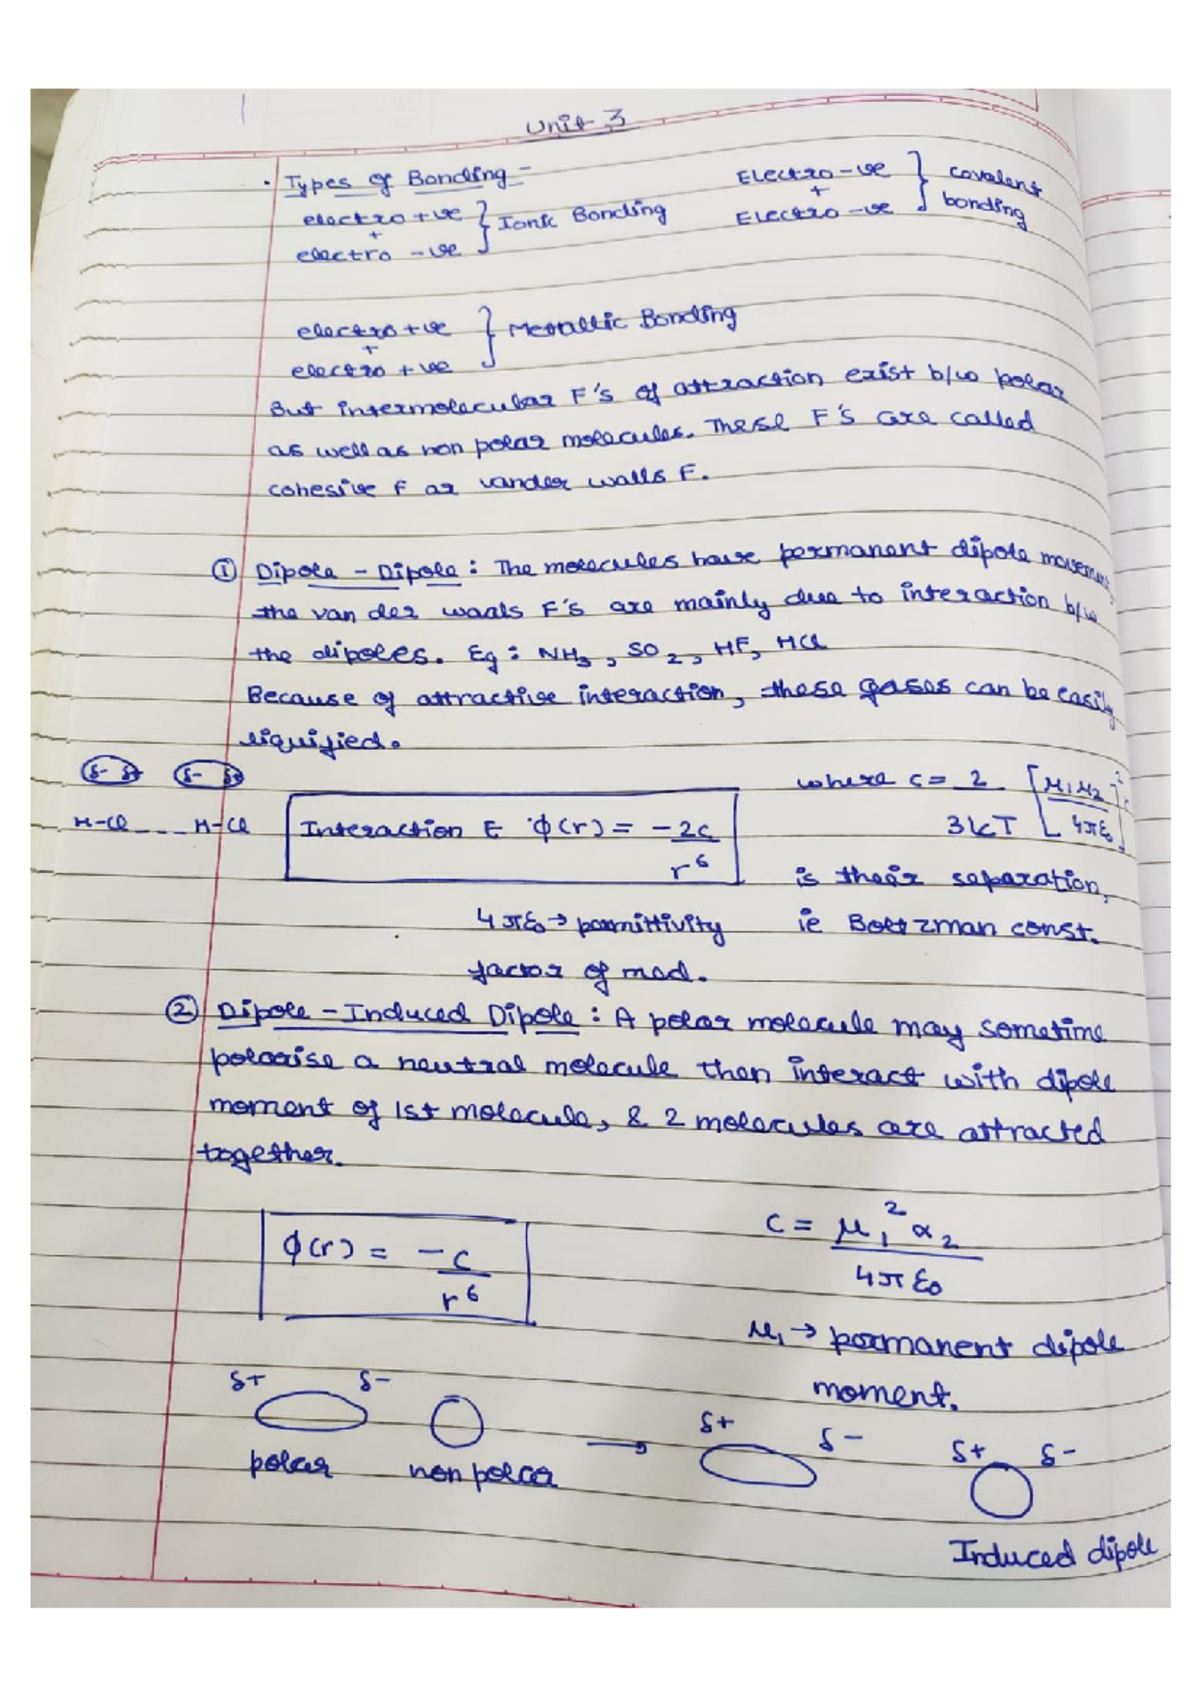 Unit 3
Types of Bonding -
electro +ve
+
electro -ve
} Ionic Bonding
Electro -ve
+
Electro -ve
} covalent bonding
electro +ve
+
electro +ve
} Metallic Bonding
But intermolecular F's of attraction exist b/w polar
as well as non polar molecules. These F's are called
cohesive F or vander walls F.
① Dipole - Dipole : The molecules have permanent dipole
the van der waals F's are mainly due to interaction b/w
the dipoles. Eg : NH3, SO2, HF, HCl
Because of attractive interaction, these gases can be easily
liquified.
δ- δ+ δ- δ+
H-Cl _ _ _ H-Cl
Interaction E φ(r) = -2c / r^6
where c = 2 / 3kT [μ1μ2 / 4πε0]^2
is their separation,
4πε0 → permittivity
factor of med.
ie Boltzman const.
② Dipole - Induced Dipole : A polar molecule may sometime
polarise a neutral molecule then interact with dipole
moment of 1st molecule, & 2 molecules are attracted
together.
φ(r) = -c / r^6
c = μ1^2 α2 / 4πε0
μ1 → permanent dipole
moment.
δ+ δ-
polar
non polar
→
δ+ δ-
δ+ δ-
Induced dipole